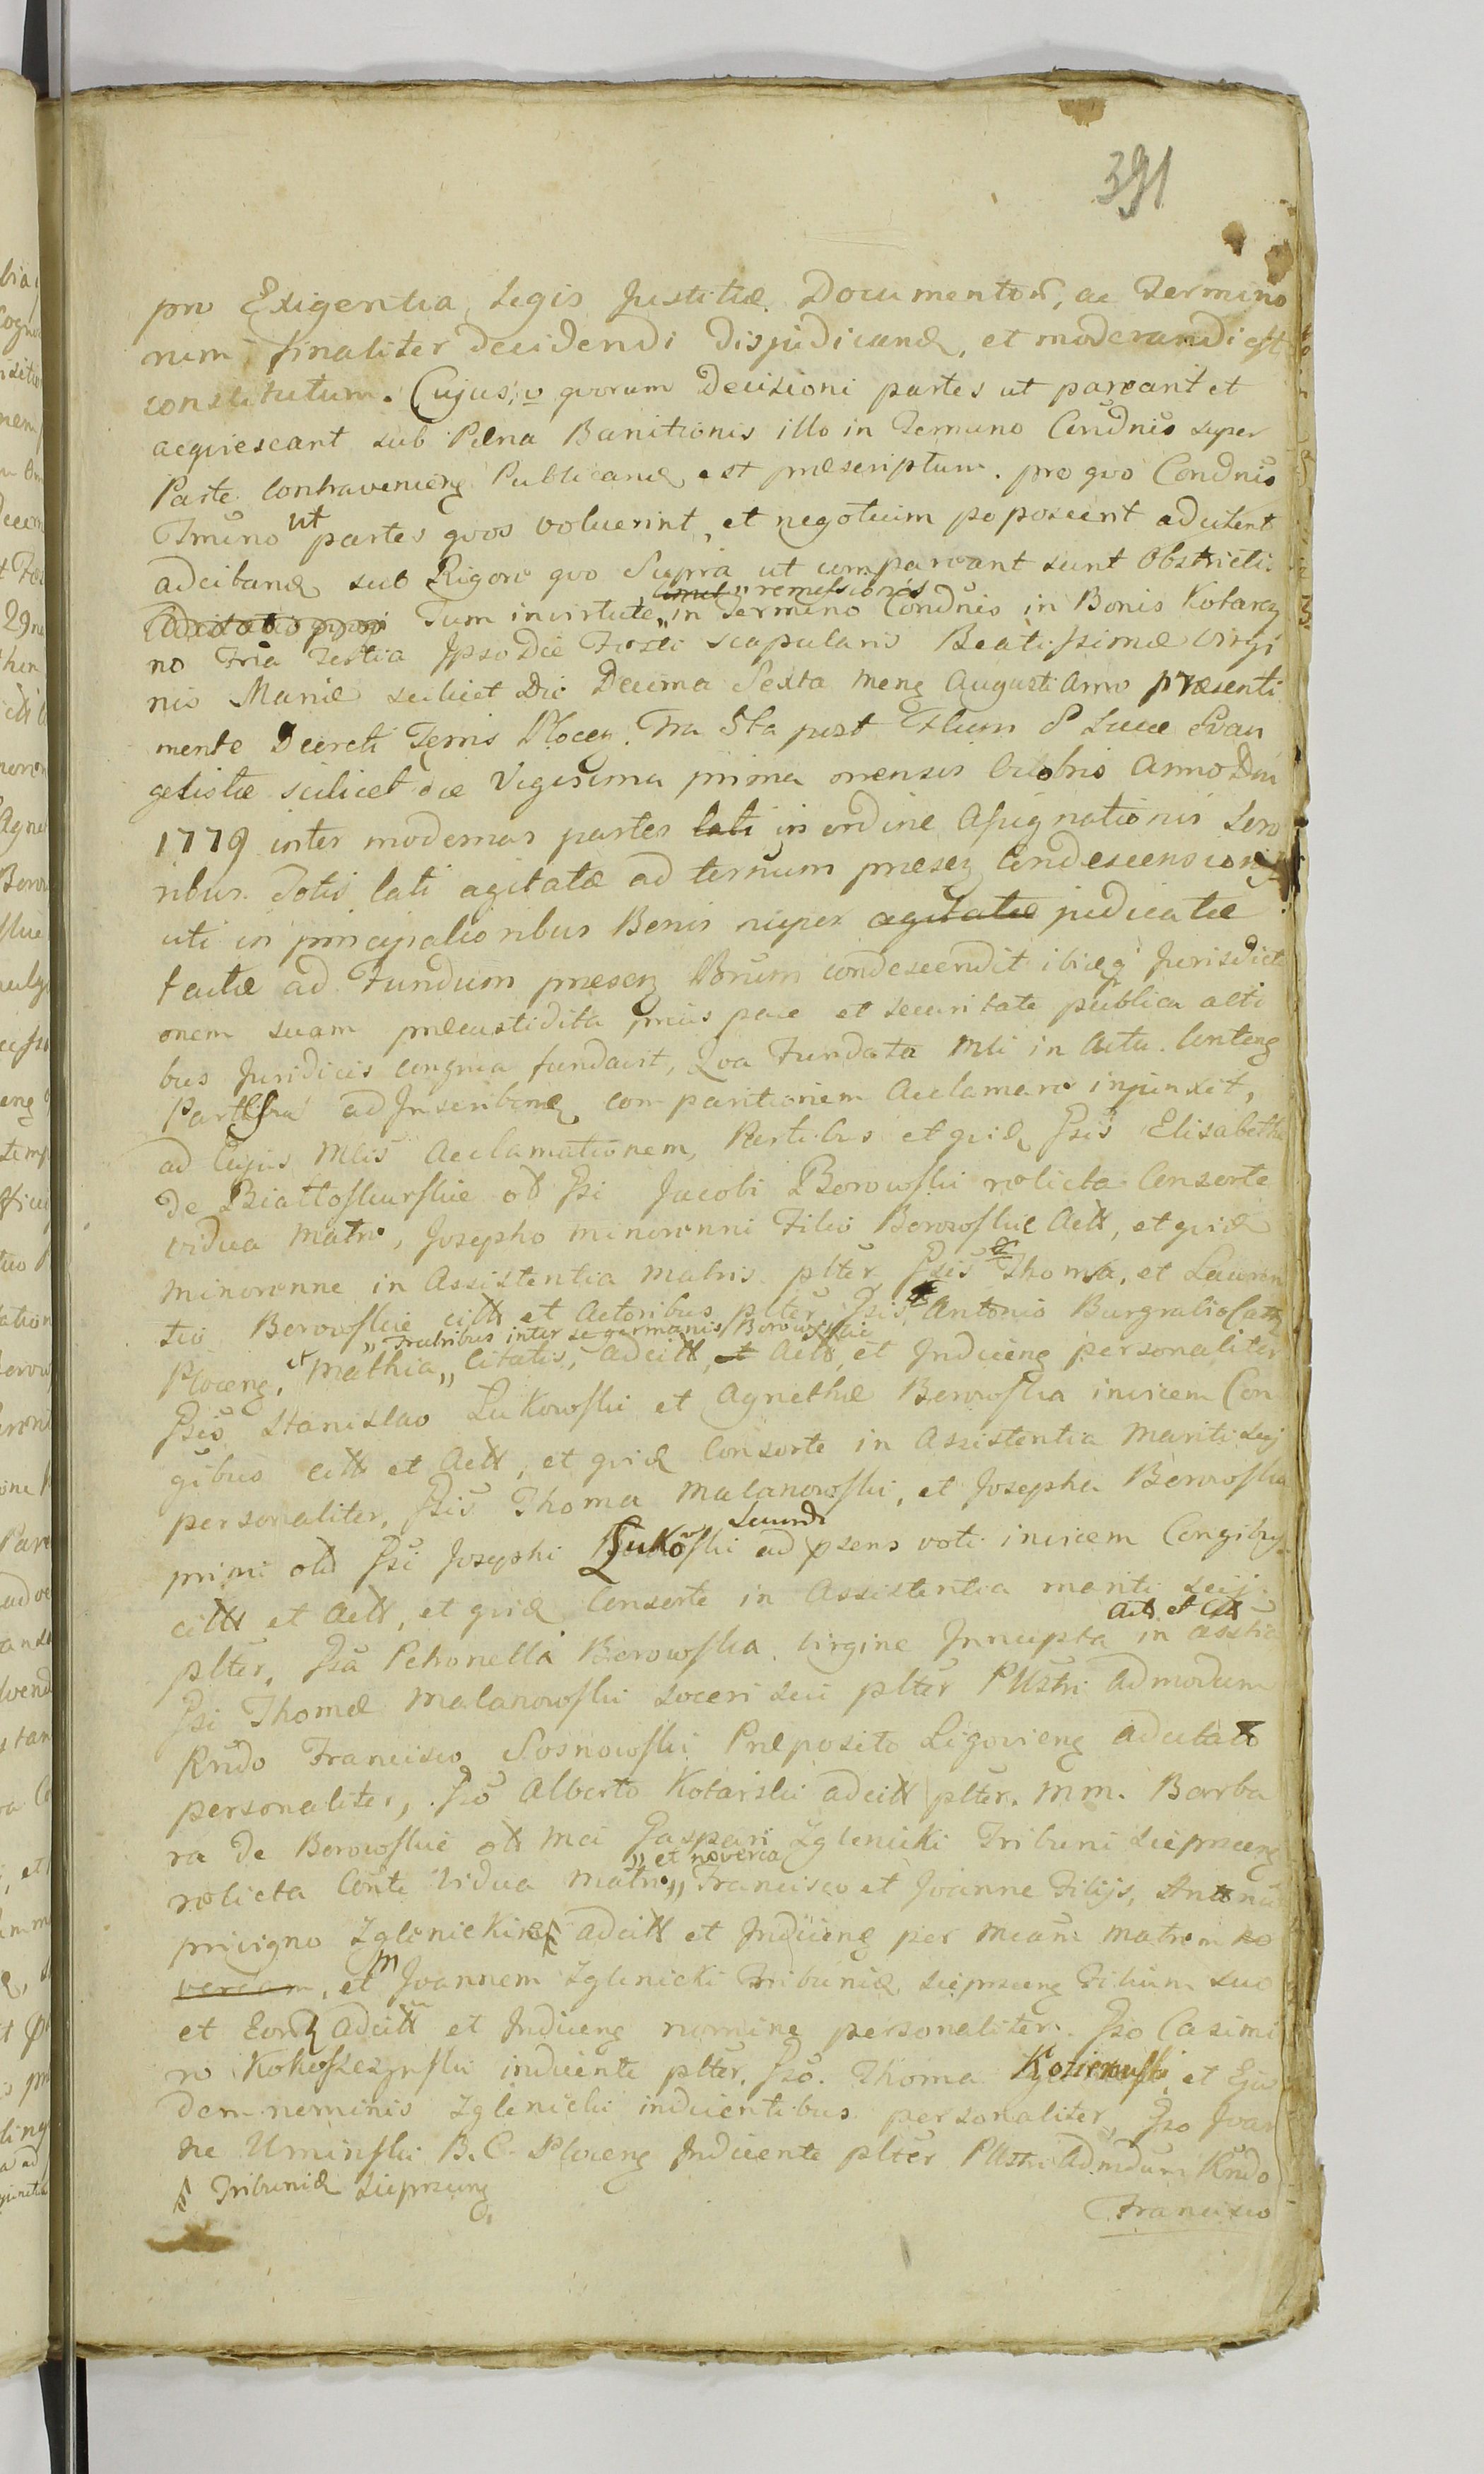 391
pro Exigentia Legis Justitiæ Documentor, ac Termino
rum finaliter decidendi dijudicand, et moderandi est
constitutum. Cujus, v quorum Decisioni partes ut pareant et
acquiescant sub Pæna Banitionis illo in Termino Condnis super
Parte Contravenieng Publicand est præscriptum. pro quo Condnis
Tmino ut partes quos voluerint, et negotium poposcerit adcitent
adcitand sub Rigore quo Supra ut compareant sunt Obstricti.
Tum in virtute „ remissionis „ in Termino Condnis in Bonis Kotarcz
no Fria Tertia Ipso Die Festi Scapularis Beatissimæ Virgi
nis Mariæ scilicet Die Decima Sexta Meng Augusti Anno præsenti
mente Decreti Terris Plocen. Fra 5ta post Ftum S Lucæ Evan
gelistæ scilicet die Vigesima prima mensis Octobris Anno Dni
1779 inter modernas partes lati in ordine Assignationis Soro
ribus Dotis lati agitatæ ad ternum præsez Condescensionis
uti in principalioribus Bonis nuper agitatæ judicatæ
factæ ad Fundum præsez Bnrum condescendit ibiq Jurisdicti
onem suam præcustidita prius pace et securitate publica acti
bus Juridicis congrua fundavit, Qua Fundata Mli in Actu. Conteng
Partes ad Inscribend comparitionem Acclamare injunxit,
ad Cujus Mlis Acclamationem, Partibus et quid Gsis Elisabetha
de Białłoskurskie olt Gsi Jacobi Borowski relicta Consorte
vidua Matre, Josepho minorenni Filio Borowskie Actt, et quid
minorenne in Assistentia Matris plter Gsis Thoma, et Lauren
tio Borowskie citt et Actoribus plter, Gsis Antonio Burgrabio Cattr
Ploceng, et Mathia „ Fratribus inter se germanis Borowskie „ Citatis, adcitt, Actt, et Indueng personaliter
Gsis Stanislao Łukowski et Agnethæ Borowska invicem Con
gibus citt et Actt, et quid Consorte in Assistentia Mariti suj
personaliter, Gsis Thoma Malanowski, et Josepha Borowska
primi olt Gsi Josephi Łukowski Secundi ad psens voti invicem Congibus
citt et Actt, et quid Consorte in Assistentia mariti suij
plter, Gsa Petronella Borowska Virgine Innupta Act et Citt in Asstia
Gsi Thomæ Malanowski soceri sui plter Pllstri Admodum
Rndo Francisco Sosnowski Præposito Ligovieng adcitato
personaliter, Gso Alberto Kotarski adcitt plter. Mm. Barba
ra de Borowskie olt Mci Gaspari Zglenicki Tribuni Sieprceng
relicta Conte Vidua Matre „ et noverca „ Francisco et Joanne Filijs, Antonio
privigno Zglenickie adcitt et Indueng per Mcam matrem no
vercam, et M Joannem Zglenicki Tribunid Sieprceng Filium suo
et Eord adcitt et Indueng nomine personaliter. Gso Casimi
ro Kokoszczynski inducente plter, Gso. Thoma et Ejus
dem nominis Zglenicki inducentibus personaliter, Gso Joan
ne Uminski B. C. Ploceng Inducente plter Pllstri Admdum Rndo
§ Tribunid Sieprceng
Francisco